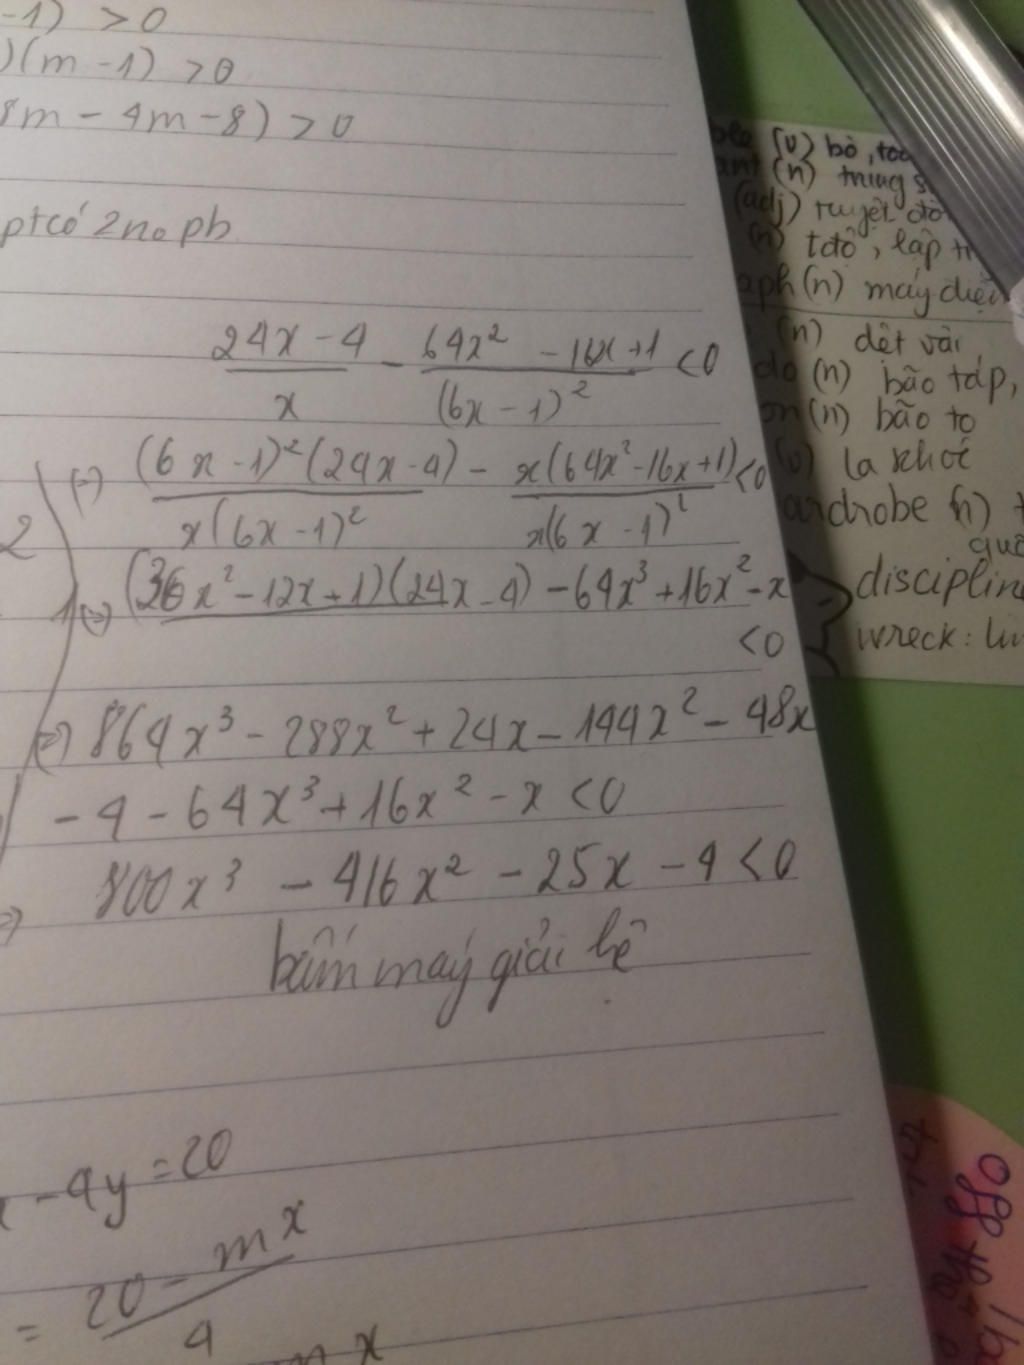 -1) > 0
)(m - 1) > 0
8m - 4m - 8) > 0
pt có 2 no pb
24x - 4 / x - 64x² - 16x + 1 / (6x - 1)² < 0
(6x - 1)²(24x - 4) / x(6x - 1)² - x(64x² - 16x + 1) / x(6x - 1)² < 0
2
(36x² - 12x + 1)(24x - 4) - 64x³ + 16x² - x
< 0
864x³ - 288x² + 24x - 144x² - 48x
- 4 - 64x³ + 16x² - x < 0
800x³ - 416x² - 25x - 4 < 0
bấm máy giải hệ
- 4y = 20
= 20 - mx / 4
x
(v) bỏ,
(n) trung
(adj) tuyệt
(n) tđộ, lập
aph (n) máy điện
(n) dệt vải
do (n) bão táp,
on (n) bão to
(v) la khóc
ardrobe (n)
quầ
discipline
wreck: